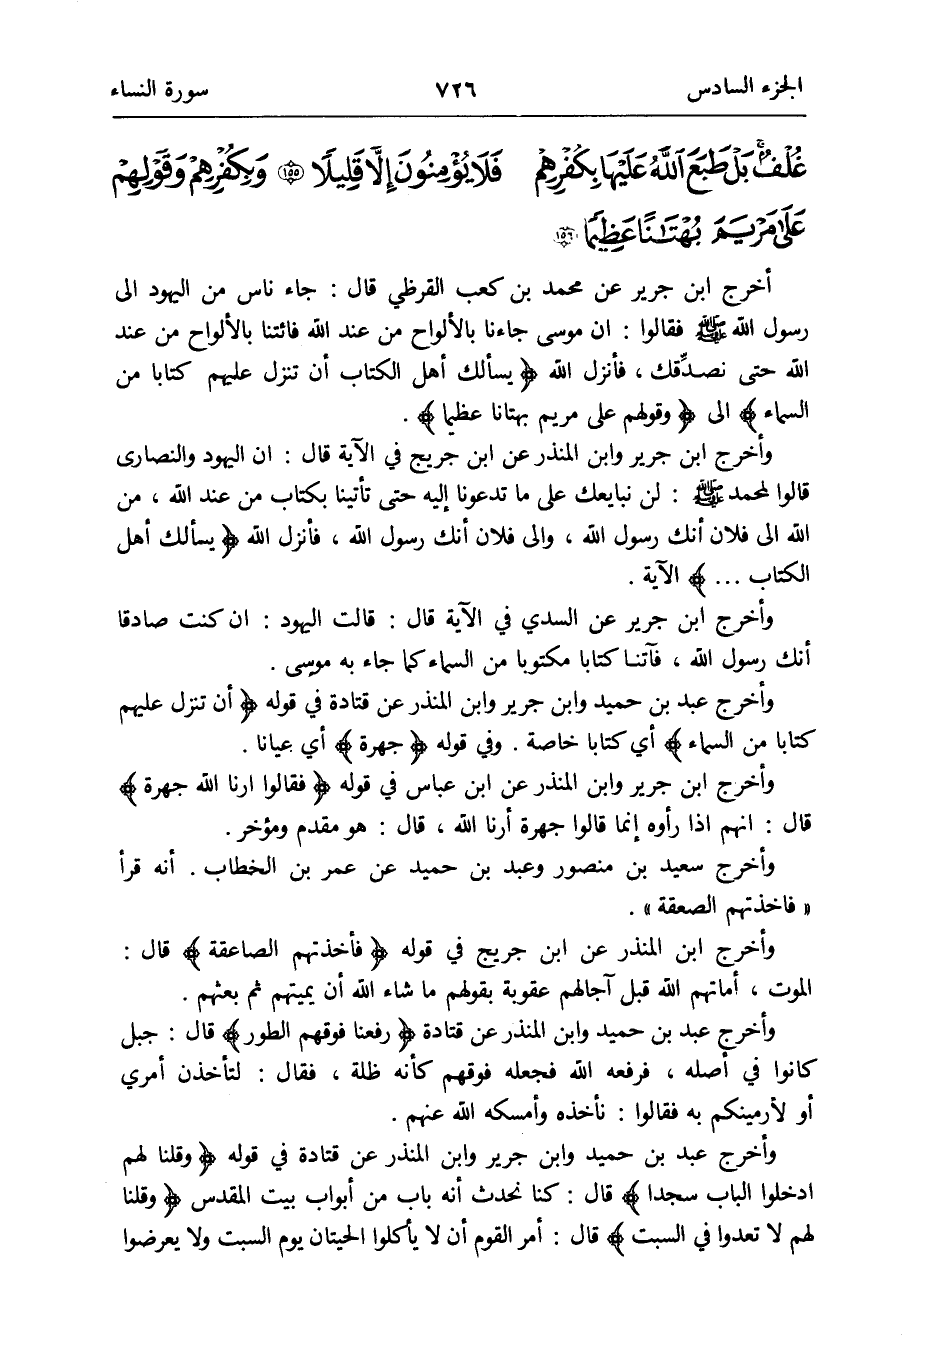 الجزء السادس ٧٢٦ سورة النساء
غُلْفٌ بَلْ طَبَعَ ٱللَّهُ عَلَيْهَا بِكُفْرِهِمْ فَلَا يُؤْمِنُونَ إِلَّا قَلِيلًا ١٥٥ وَبِكُفْرِهِمْ وَقَوْلِهِمْ
عَلَىٰ مَرْيَمَ بُهْتَٰنًا عَظِيمًا ١٥٦
أخرج ابن جرير عن محمد بن كعب القرظي قال : جاء ناس من اليهود الى
رسول الله ﷺ فقالوا : ان موسى جاءنا بالألواح من عند الله فائتنا بالألواح من عند
الله حتى نصدِّقك ، فأنزل الله ﴿ يسألك أهل الكتاب أن تنزل عليهم كتابا من
السماء ﴾ الى ﴿ وقولهم على مريم بهتانا عظيما ﴾ .
وأخرج ابن جرير وابن المنذر عن ابن جريج في الآية قال : ان اليهود والنصارى
قالوا لمحمد ﷺ : لن نبايعك على ما تدعونا إليه حتى تأتينا بكتاب من عند الله ، من
الله الى فلان أنك رسول الله ، والى فلان أنك رسول الله ، فأنزل الله ﴿ يسألك أهل
الكتاب ... ﴾ الآية .
وأخرج ابن جرير عن السدي في الآية قال : قالت اليهود : ان كنت صادقا
أنك رسول الله ، فآتنا كتابا مكتوبا من السماء كما جاء به موسى .
وأخرج عبد بن حميد وابن جرير وابن المنذر عن قتادة في قوله ﴿ أن تنزل عليهم
كتابا من السماء ﴾ أي كتابا خاصة . وفي قوله ﴿ جهرة ﴾ أي عيانا .
وأخرج ابن جرير وابن المنذر عن ابن عباس في قوله ﴿ فقالوا ارنا الله جهرة ﴾
قال : انهم اذا رأوه إنما قالوا جهرة أرنا الله ، قال : هو مقدم ومؤخر .
وأخرج سعيد بن منصور وعبد بن حميد عن عمر بن الخطاب . أنه قرأ
« فاخذتهم الصعقة » .
وأخرج ابن المنذر عن ابن جريج في قوله ﴿ فأخذتهم الصاعقة ﴾ قال :
الموت ، أماتهم الله قبل آجالهم عقوبة بقولهم ما شاء الله أن يميتهم ثم بعثهم .
وأخرج عبد بن حميد وابن المنذر عن قتادة ﴿ رفعنا فوقهم الطور ﴾ قال : جبل
كانوا في أصله ، فرفعه الله فجعله فوقهم كأنه ظلة ، فقال : لتأخذن أمري
أو لأرمينكم به فقالوا : نأخذه وأمسكه الله عنهم .
وأخرج عبد بن حميد وابن جرير وابن المنذر عن قتادة في قوله ﴿ وقلنا لهم
ادخلوا الباب سجدا ﴾ قال : كنا نحدث أنه باب من أبواب بيت المقدس ﴿ وقلنا
لهم لا تعدوا في السبت ﴾ قال : أمر القوم أن لا يأكلوا الحيتان يوم السبت ولا يعرضوا